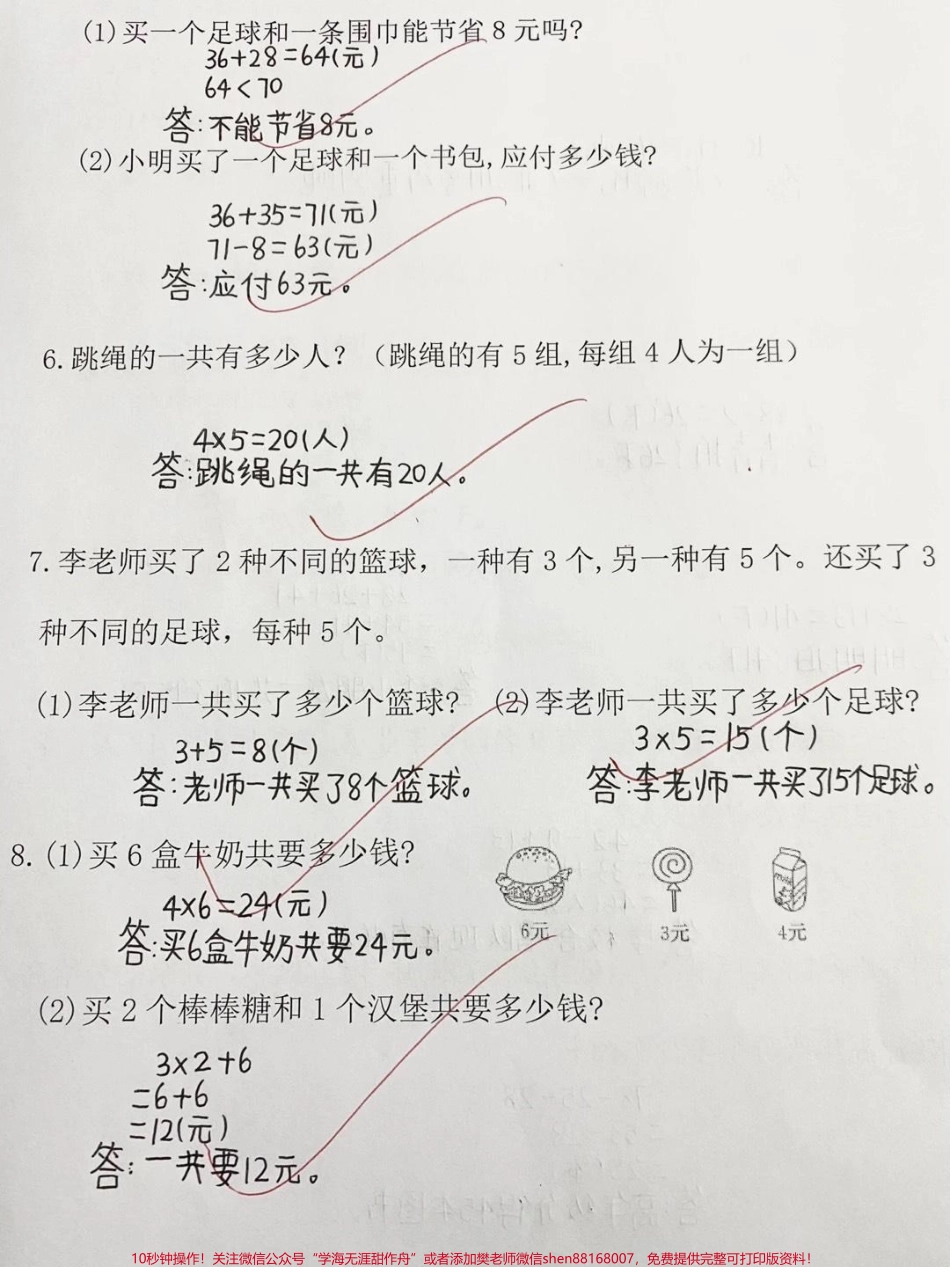 (1)买一个足球和一条围巾能节省8元吗?
36+28=64(元)
64<70
答:不能节省8元。
(2)小明买了一个足球和一个书包,应付多少钱?
36+35=71(元)
71-8=63(元)
答:应付63元。
6.跳绳的一共有多少人？（跳绳的有5组,每组4人为一组）
4×5=20(人)
答:跳绳的一共有20人。
7.李老师买了2种不同的篮球，一种有3个,另一种有5个。还买了3
种不同的足球，每种5个。
(1)李老师一共买了多少个篮球? (2)李老师一共买了多少个足球?
3+5=8(个) 3×5=15(个)
答:老师一共买了8个篮球。 答:李老师一共买了15个足球。
8.(1)买6盒牛奶共要多少钱?
milk
4×6=24(元)
6元 3元 4元
答:买6盒牛奶共要24元。
(2)买2个棒棒糖和1个汉堡共要多少钱?
3×2+6
=6+6
=12(元)
答:一共要12元。
10秒钟操作！关注微信公众号“学海无涯甜作舟”或者添加樊老师微信shen88168007，免费提供完整可打印版资料！